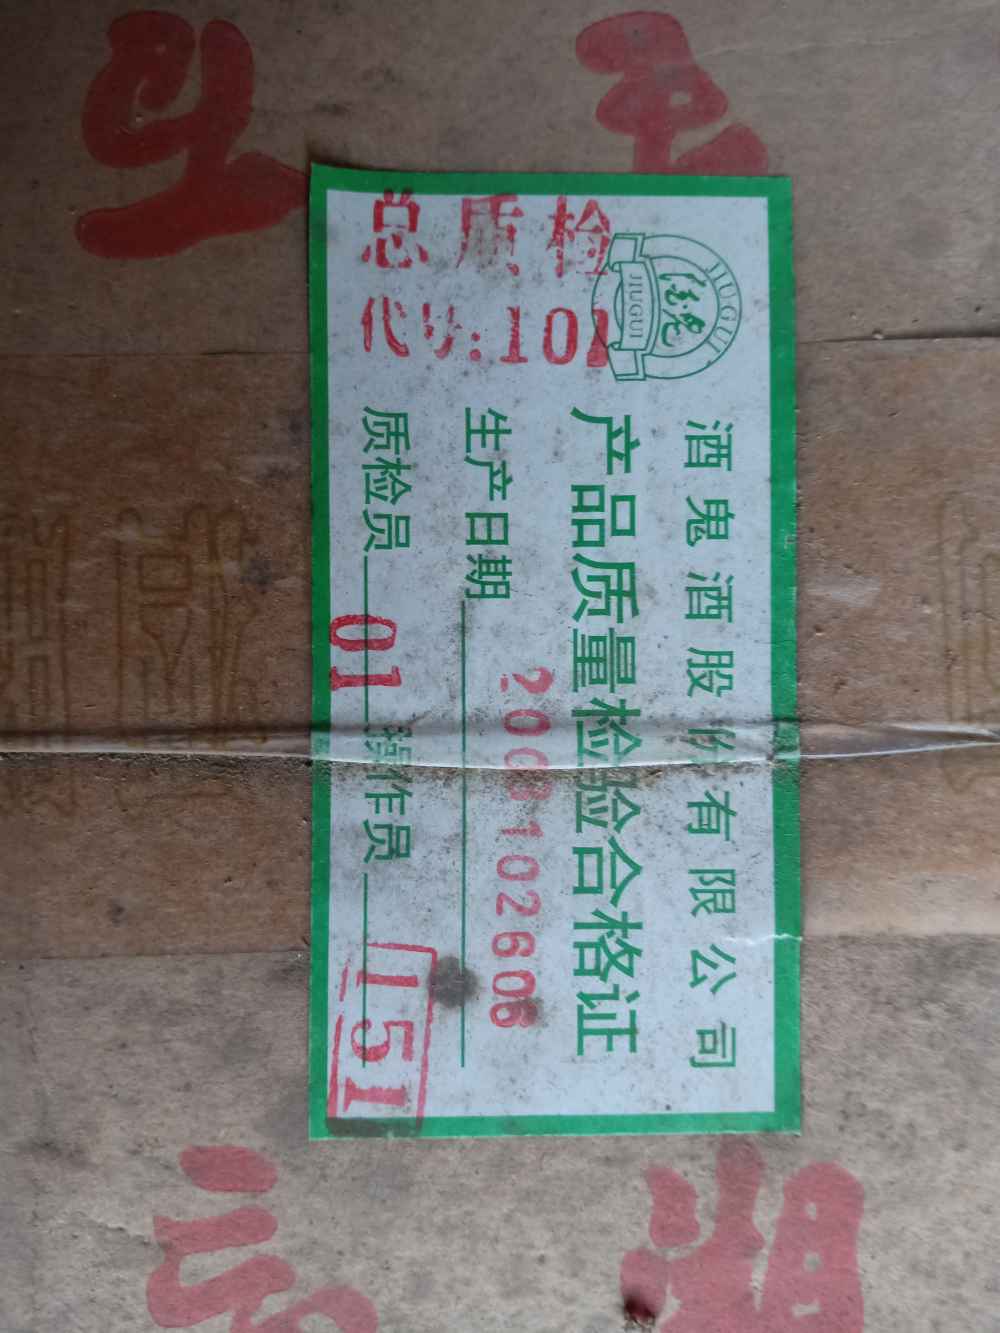 总质检
代号:101
JIUGUI
酒鬼
JIUGUI
酒鬼酒股份有限公司
产品质量检验合格证
生产日期 2003102606
质检员 01 操作员 151